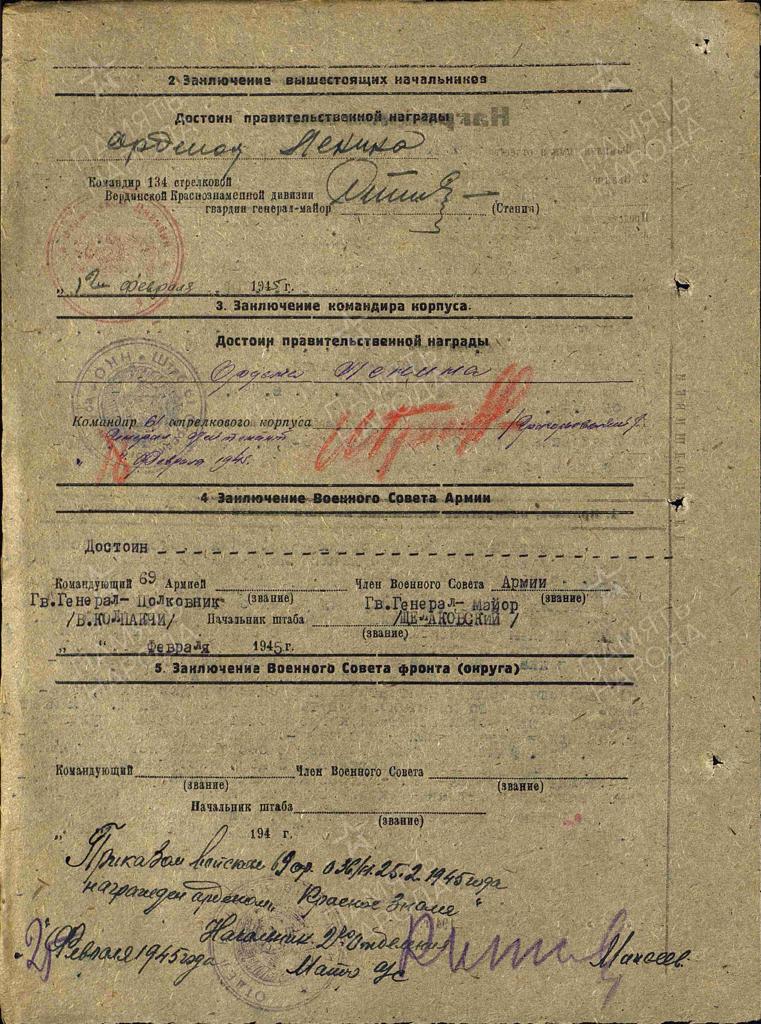 2 Заключение вышестоящих начальников
Достоин правительственной награды
орденом Ленина
Командир 134 стрелковой
Вердинской Краснознаменной дивизии
гвардии генерал-майор (Стенин)
„12" февраля 1945 г.
3. Заключение командира корпуса.
Достоин правительственной награды
Ордена Ленина
Командир 61 стрелкового корпуса
генерал лейтенант
" " Февраля 1945.
4 Заключение Военного Совета Армии
Достоин
Командующий 69 Армией Член Военного Совета Армии
Гв.Генерал- Полковник (звание) Гв.Генерал- Майор (звание)
/В.КОЛПАКЧИ/ Начальник штаба /ЩЕЛАКОВСКИЙ/
(звание)
„ " Февраля 1945г.
5. Заключение Военного Совета фронта (округа)
Командующий Член Военного Совета
(звание) (звание)
Начальник штаба
(звание)
„ 194 г.
Приказом войскам 69 ар. 036/н 25.2.1945 года
награжден орденом „Красное Знамя"
Начальник 2го Отделения
Февраля 1945 года Майор а/с
ПАМЯТЬ НАРОДА